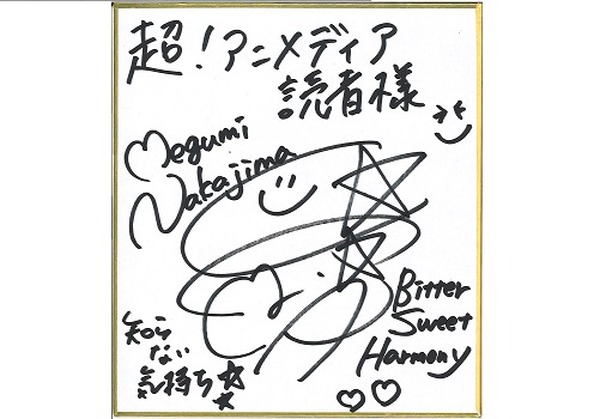 超!アニメディア
読者様
Megumi
Nakajima
知らない
気持ち
Bitter
Sweet
Harmony